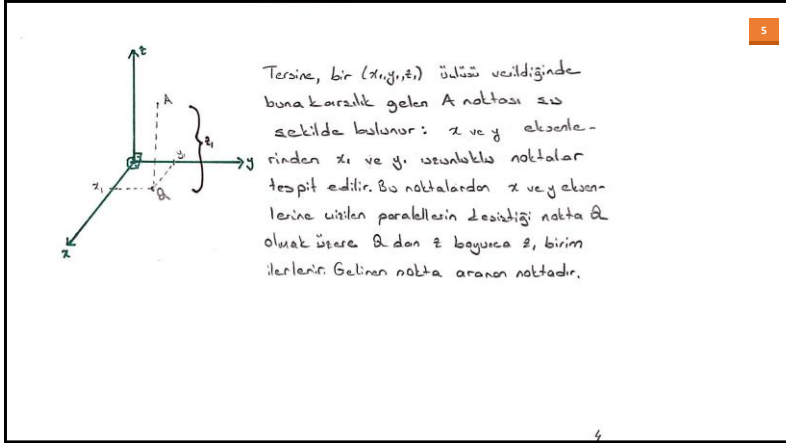 5
z
A
z₁
y₁
y
x₁
Q
x
Tersine, bir (x₁,y₁,z₁) üçlüsü verildiğinde
buna karşılık gelen A noktası şu
şekilde bulunur: x ve y eksenle-
rinden x₁ ve y₁ uzunluklu noktalar
tespit edilir. Bu noktalardan x ve y eksen-
lerine çizilen paralellerin kesiştiği nokta Q
olmak üzere Q dan z boyunca z₁ birim
ilerlenir. Gelinen nokta aranan noktadır.
4